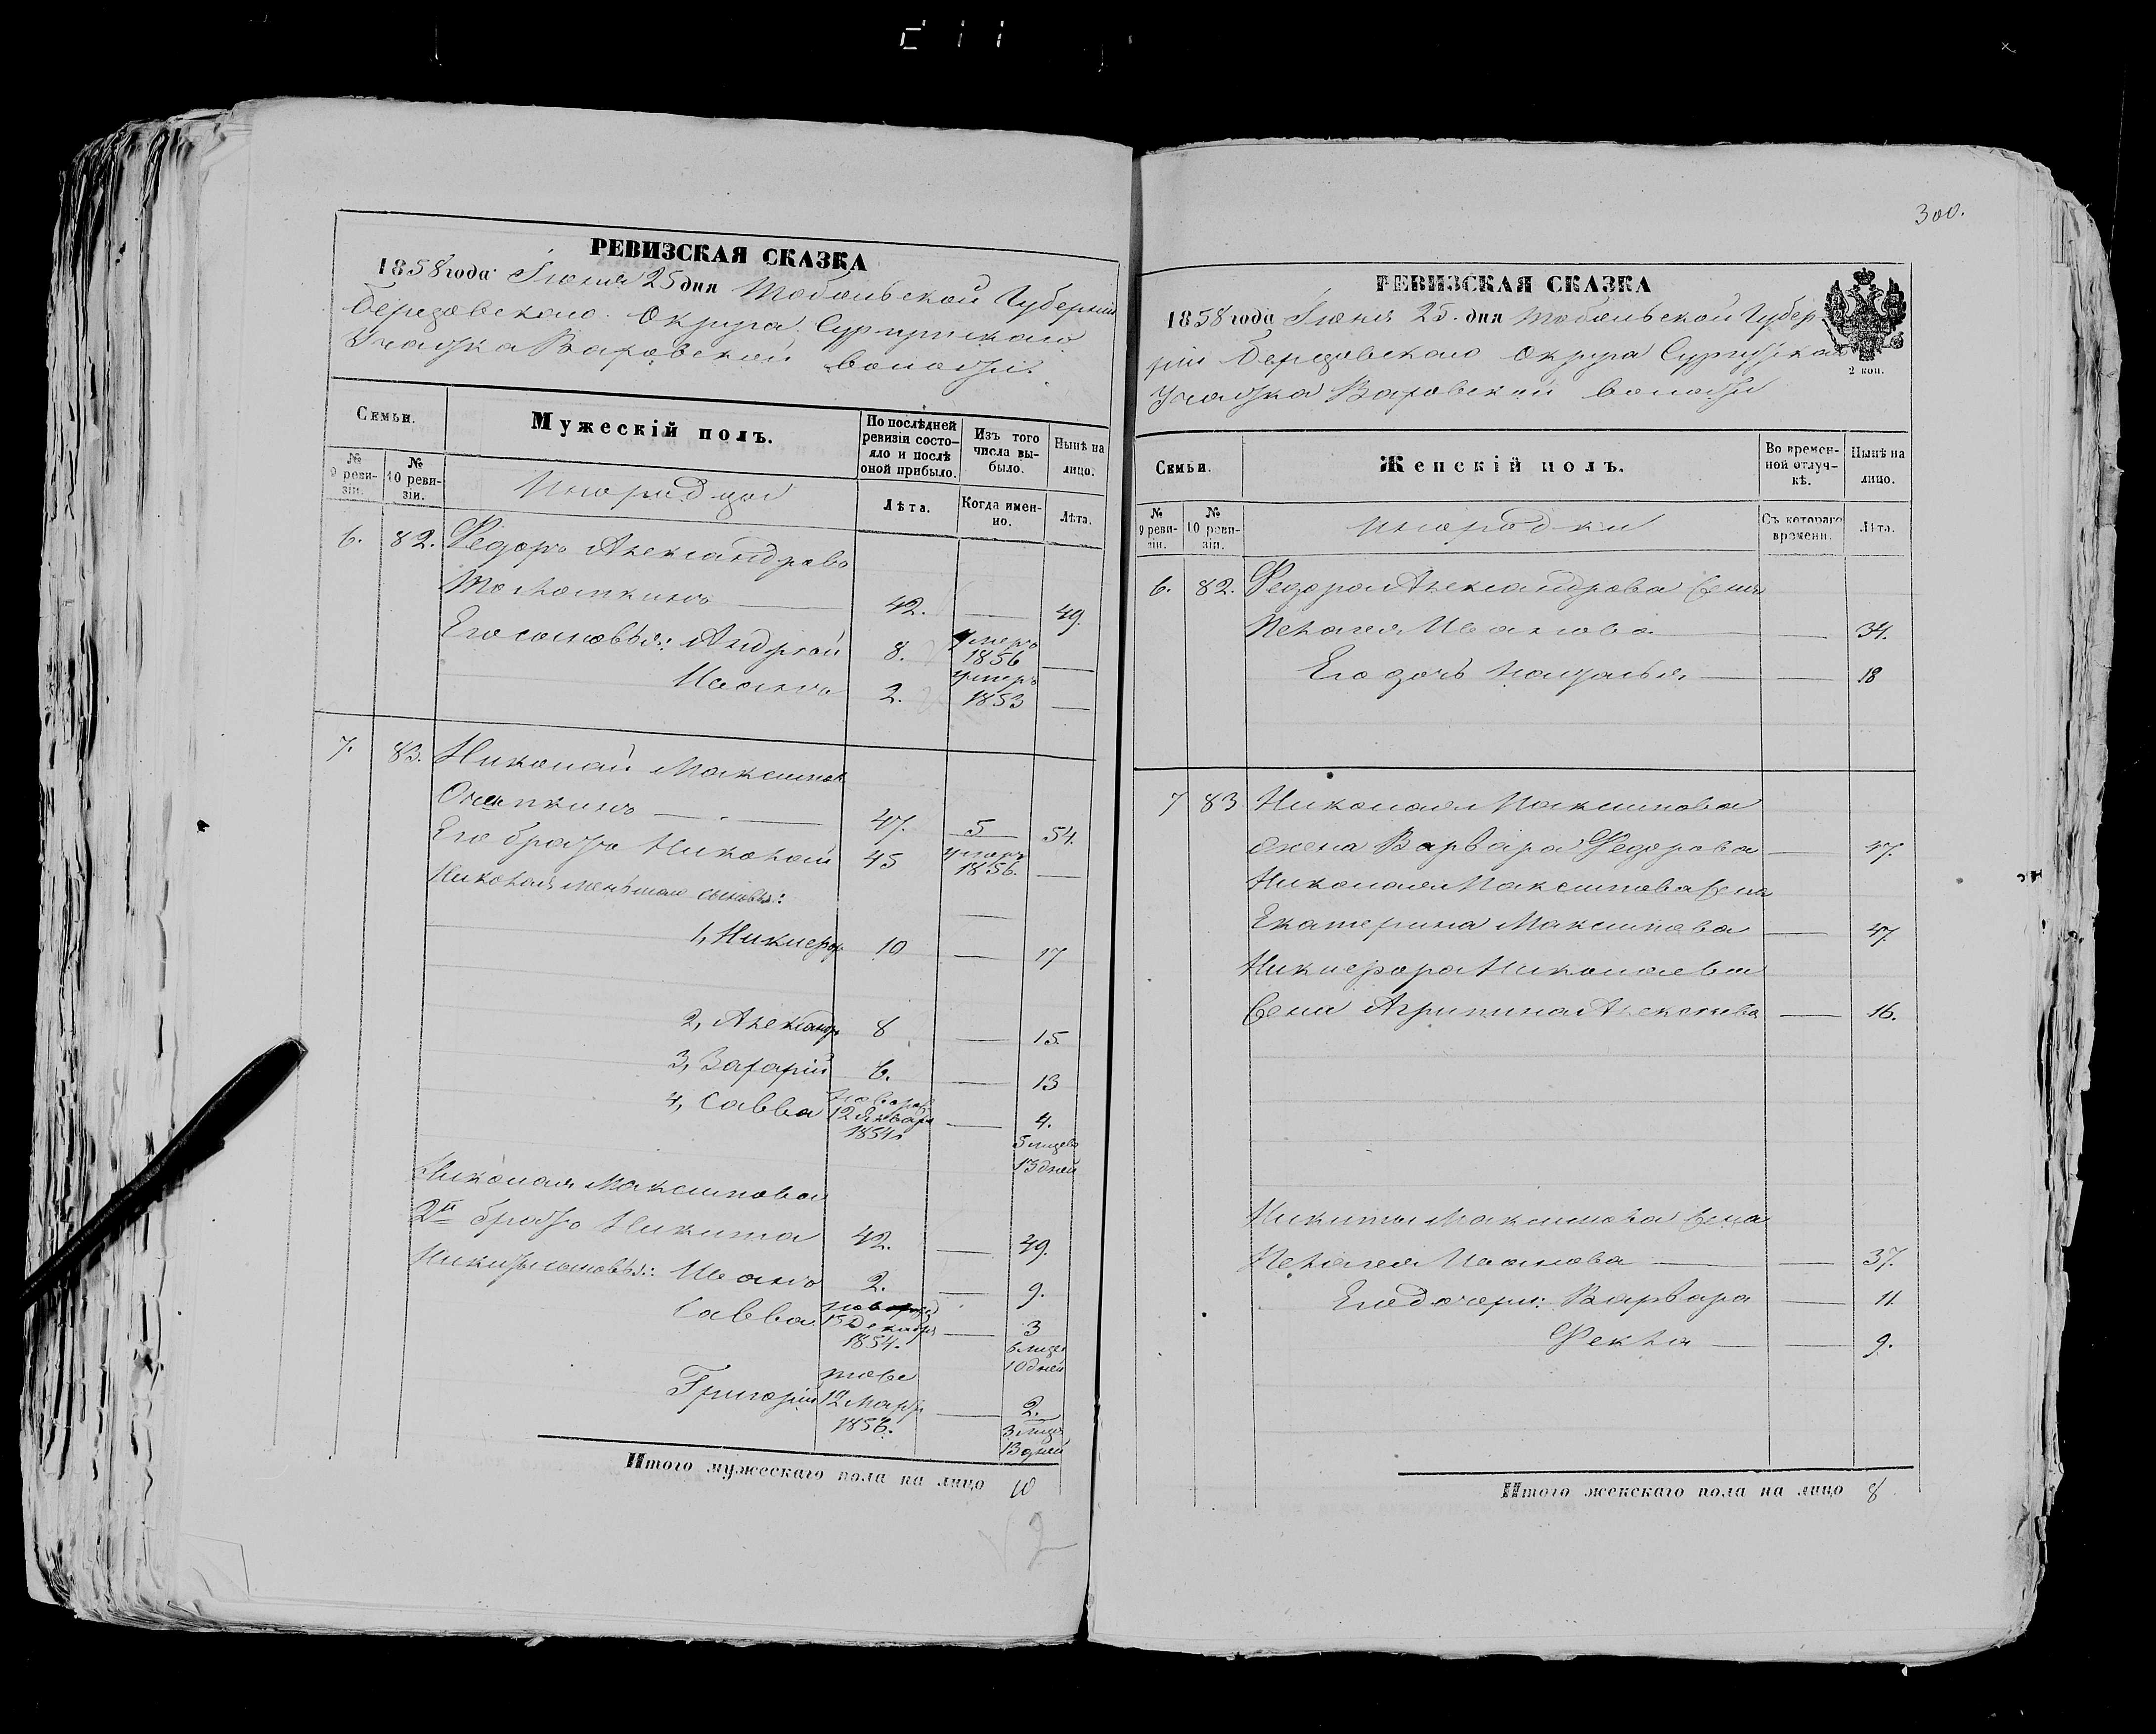 300.
РЕВИЗСКАЯ СКАЗКА
1858 года Іюня 25 дня Тобольской Губерніи
Березовскаго Округа Сургутскаго
Участка Ваховской волости.
Семьи.
Мужескій полъ.
По послѣдней ревизіи состояло и послѣ оной прибыло.
Изъ того числа выбыло.
Нынѣ на лицо.
№ 9 ревизіи.
№ 10 ревизіи.
Инородцы
Лѣта.
Когда именно.
Лѣта.
6. 82. Федоръ Александровъ
42. — 49.
Его сыновья: Андрей 8. умеръ 1856 —
Иванъ 2. умеръ 1853 —
7. 83. Николай Максимов
47. 5 54.
Его братъ Николай 45 умеръ 1856. —
Николая меньшаго сыновья:
1, Никифор 10 — 17
2, Александр 8 — 15.
3, Захарій 6. — 13
4, Савва 12 Января 1854 — 4. 5 мицев 13 дней
Николая Максимова
2й братъ Никита 42. — 49.
Никиты сыновья: Иванъ 2. — 9.
Савва 15 Декабря 1854. — 3 6 мице 10 дней
Григорій тоже 12 Март 1856. — 2. 3 мице 13 дней
Итого мужескаго пола на лицо 10
2
РЕВИЗСКАЯ СКАЗКА
1858 года Іюня 25. дня Тобольской Губер-
ніи Березовскаго Округа Сургутскаго
Участка Ваховской волости
2 коп.
Семьи.
Женскій полъ.
Во временной отлучкѣ.
Нынѣ на лицо.
№ 9 ревизіи.
№ 10 ревизіи.
инородки
Съ котораго времени.
Лѣта.
6. 82. Федора Александрова жена
Пелагея Иванова — — 34.
Его дочь Наталья — — 18
7 83 Николая Максимова
жена Варвара Федорова — 47.
Николая Максимова жена
Екатерина Максимова — 47.
Никифора Николаева
жена Агрипина Алексеева — 16.
Никиты Максимова жена
Пелагея Иванова — — 37.
Его дочери: Варвара — 11.
Фекла — — 9.
Итого женскаго пола на лицо 8